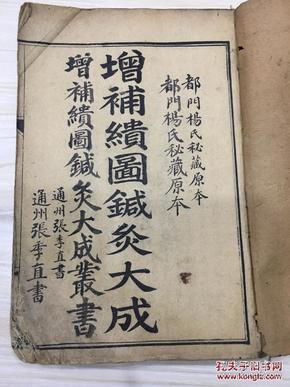 都門楊氏秘藏原本
都門楊氏秘藏原本
增補繢圖鍼灸大成
增補繢圖鍼灸大成叢書
通州張季直書
通州張季直書